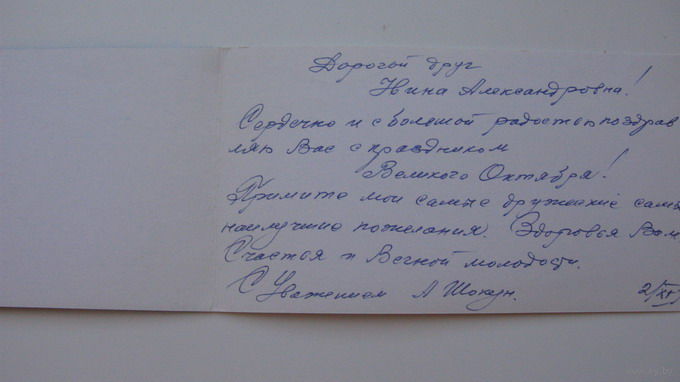 Дорогой друг
Нина Александровна!
Сердечно и с большой радостью поздрав
ляю Вас с праздником
Великого Октября!
Примите мои самые дружеские самы
наилучшие пожелания. Здоровья Вам
Счастья и Вечной молодости.
С Уважением А Шокун.
2/XI